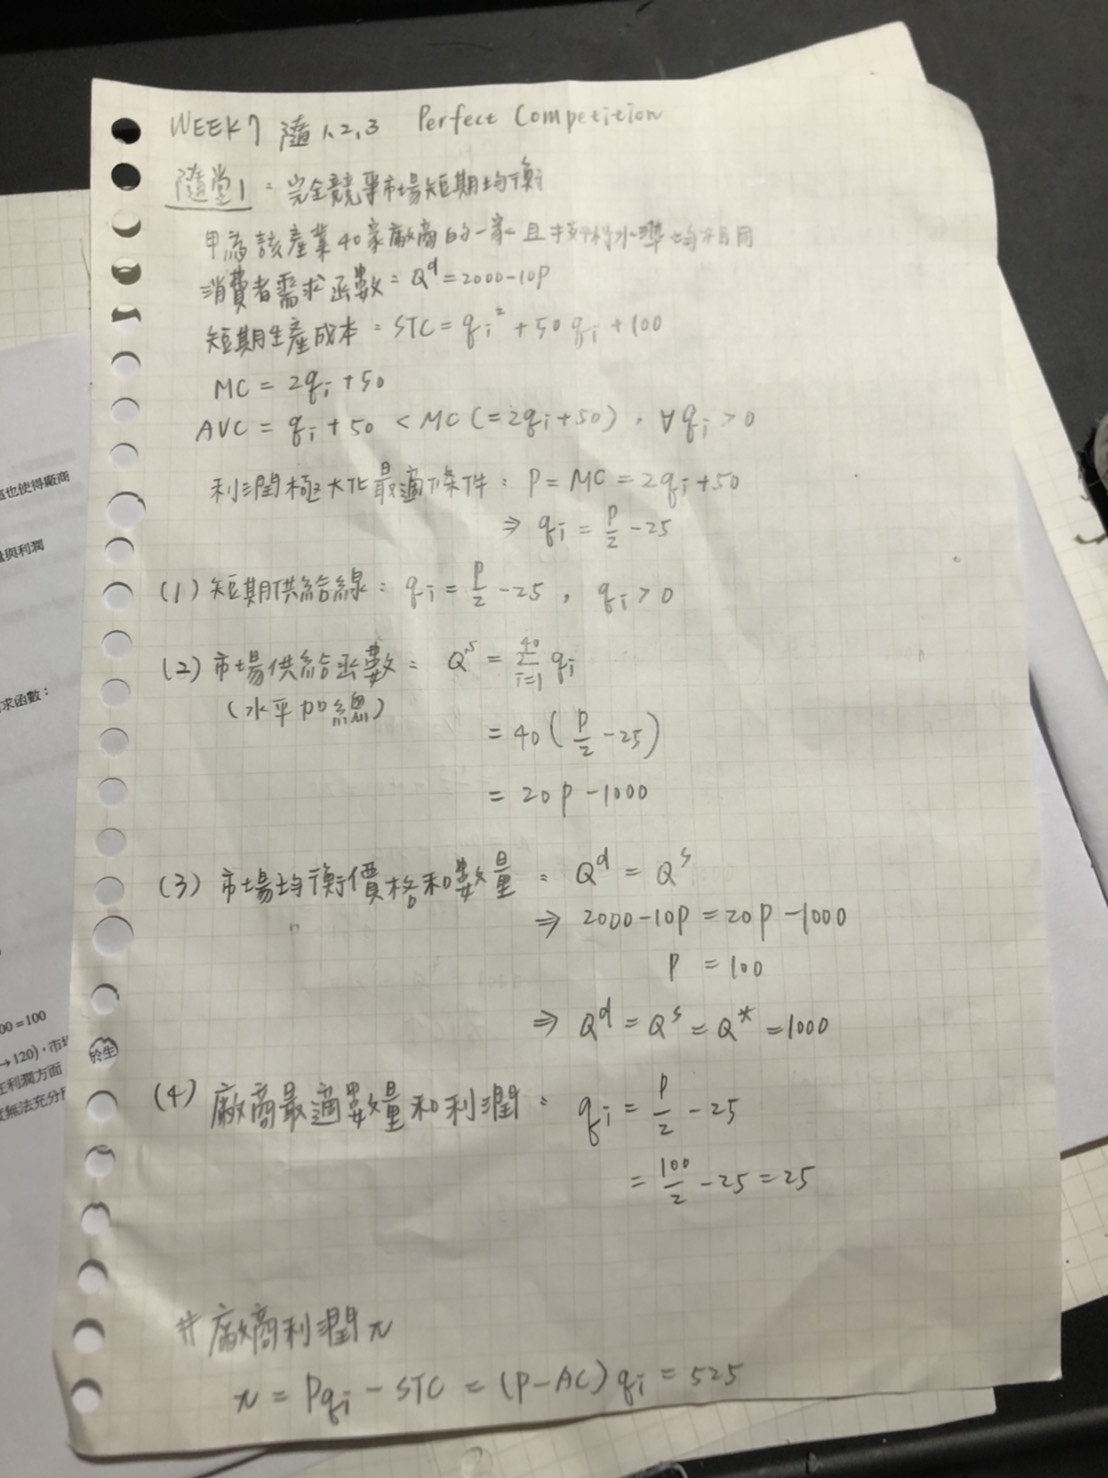 WEEK7 隨1,2,3 Perfect Competition
隨堂1：完全競爭市場短期均衡
甲為該產業40家廠商的一家且技術水準均相同
消費者需求函數：Q^d = 2000-10P
短期生產成本：STC = qi² + 50qi + 100
MC = 2qi + 50
AVC = qi + 50 < MC (= 2qi+50)，∀qi > 0
利潤極大化最適條件：P = MC = 2qi + 50
⇒ qi = P/2 - 25
(1) 短期供給線：qi = P/2 - 25，qi > 0
(2) 市場供給函數：Q^s = Σ_{i=1}^{40} qi
(水平加總)
= 40(P/2 - 25)
= 20P - 1000
(3) 市場均衡價格和數量：Q^d = Q^s
⇒ 2000-10P = 20P-1000
P = 100
⇒ Q^d = Q^s = Q* = 1000
(4) 廠商最適數量和利潤：qi = P/2 - 25
= 100/2 - 25 = 25
# 廠商利潤π
π = Pqi - STC = (P-AC)qi = 525
也使得廠商
與利潤
求函數：
00 = 100
→120)，市
在利潤方面
無法充分
於生